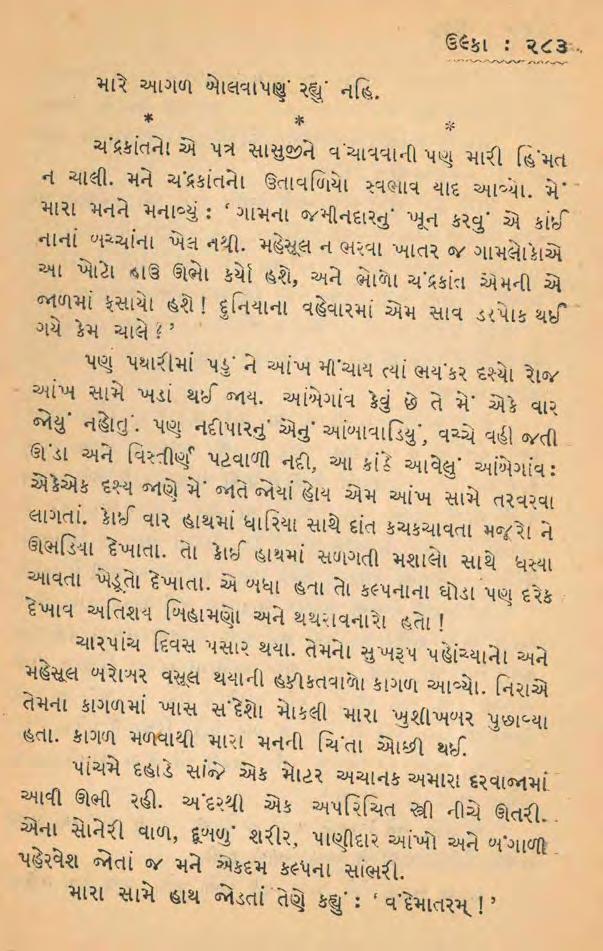 ઉલ્કા : ૨૮૩
મારે આગળ બોલવાપણું રહ્યું નહિ.
* * *
ચંદ્રકાંતનો એ પત્ર સાસુજીને વંચાવવાની પણ મારી હિંમત
ન ચાલી. મને ચંદ્રકાંતનો ઉતાવળિયો સ્વભાવ યાદ આવ્યો. મેં
મારા મનને મનાવ્યું : ‘ ગામના જમીનદારનું ખૂન કરવું એ કાંઈ
નાનાં બચ્ચાંના ખેલ નથી. મહેસૂલ ન ભરવા ખાતર જ ગામલોકોએ
આ ખોટો હાઉ ઊભો કર્યો હશે, અને ભોળો ચંદ્રકાંત એમની એ
જાળમાં ફસાયો હશે ! દુનિયાના વહેવારમાં એમ સાવ ડરપોક થઈ
ગયે કેમ ચાલે ? ’
પણ પથારીમાં પડું ને આંખ મીંચાય ત્યાં ભયંકર દશ્યો રોજ
આંખ સામે ખડાં થઈ જાય. આંબેગાંવ કેવું છે તે મેં એકે વાર
જોયું નહોતું. પણ નદીપારનું એનું આંબાવાડિયું, વચ્ચે વહી જતી
ઊંડા અને વિસ્તીર્ણ પટવાળી નદી, આ કાંઠે આવેલું આંબેગાંવ :
એકેએક દશ્ય જાણે મેં જાતે જોયાં હોય એમ આંખ સામે તરવરવા
લાગતાં. કોઈ વાર હાથમાં ધારિયા સાથે દાંત કચકચાવતા મજૂરો ને
ઊભડિયા દેખાતા. તો કોઈ હાથમાં સળગતી મશાલો સાથે ધસ્યા
આવતા ખેડૂતો દેખાતા. એ બધા હતા તો કલ્પનાના ઘોડા પણ દરેક
દેખાવ અતિશય બિહામણો અને થથરાવનારો હતો !
ચારપાંચ દિવસ પસાર થયા. તેમનો સુખરૂપ પહોંચ્યાનો અને
મહેસૂલ બરોબર વસૂલ થયાની હકીકતવાળો કાગળ આવ્યો. નિરાએ
તેમના કાગળમાં ખાસ સંદેશો મોકલી મારા ખુશીખબર પુછાવ્યા
હતા. કાગળ મળવાથી મારા મનની ચિંતા ઓછી થઈ.
પાંચમે દહાડે સાંજે એક મોટર અચાનક અમારા દરવાજામાં
આવી ઊભી રહી. અંદરથી એક અપરિચિત સ્ત્રી નીચે ઊતરી.
એના સોનેરી વાળ, દૂબળું શરીર, પાણીદાર આંખો અને બંગાળી
પહેરવેશ જોતાં જ મને એકદમ કલ્પના સાંભરી.
મારા સામે હાથ જોડતાં તેણે કહ્યું : ‘ વંદેમાતરમ્ ! ’